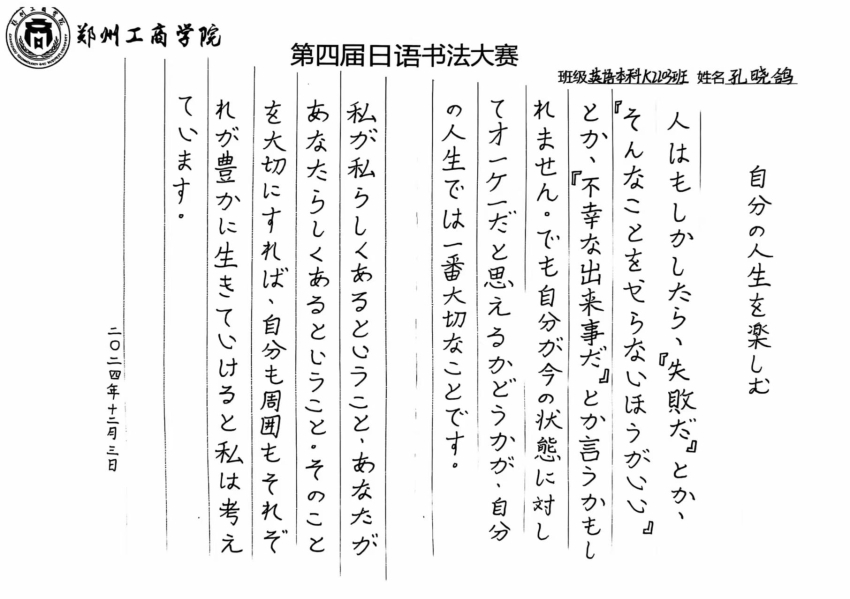 郑州工商学院
第四届日语书法大赛
班级 英语本科K2203班 姓名 孔晓鸽
自分の人生を楽しむ
人はもしかしたら、『失敗だ』とか、
『そんなことをやらないほうがいい』
とか、『不幸な出来事だ』とか言うかもし
れません。でも自分が今の状態に対し
てオーケーだと思えるかどうかが、自分
の人生では一番大切なことです。
私が私らしくあるということ、あなたが
あなたらしくあるということ。そのこと
を大切にすれば、自分も周囲もそれぞ
れが豊かに生きていけると私は考え
ています。
二〇二四年十二月三日